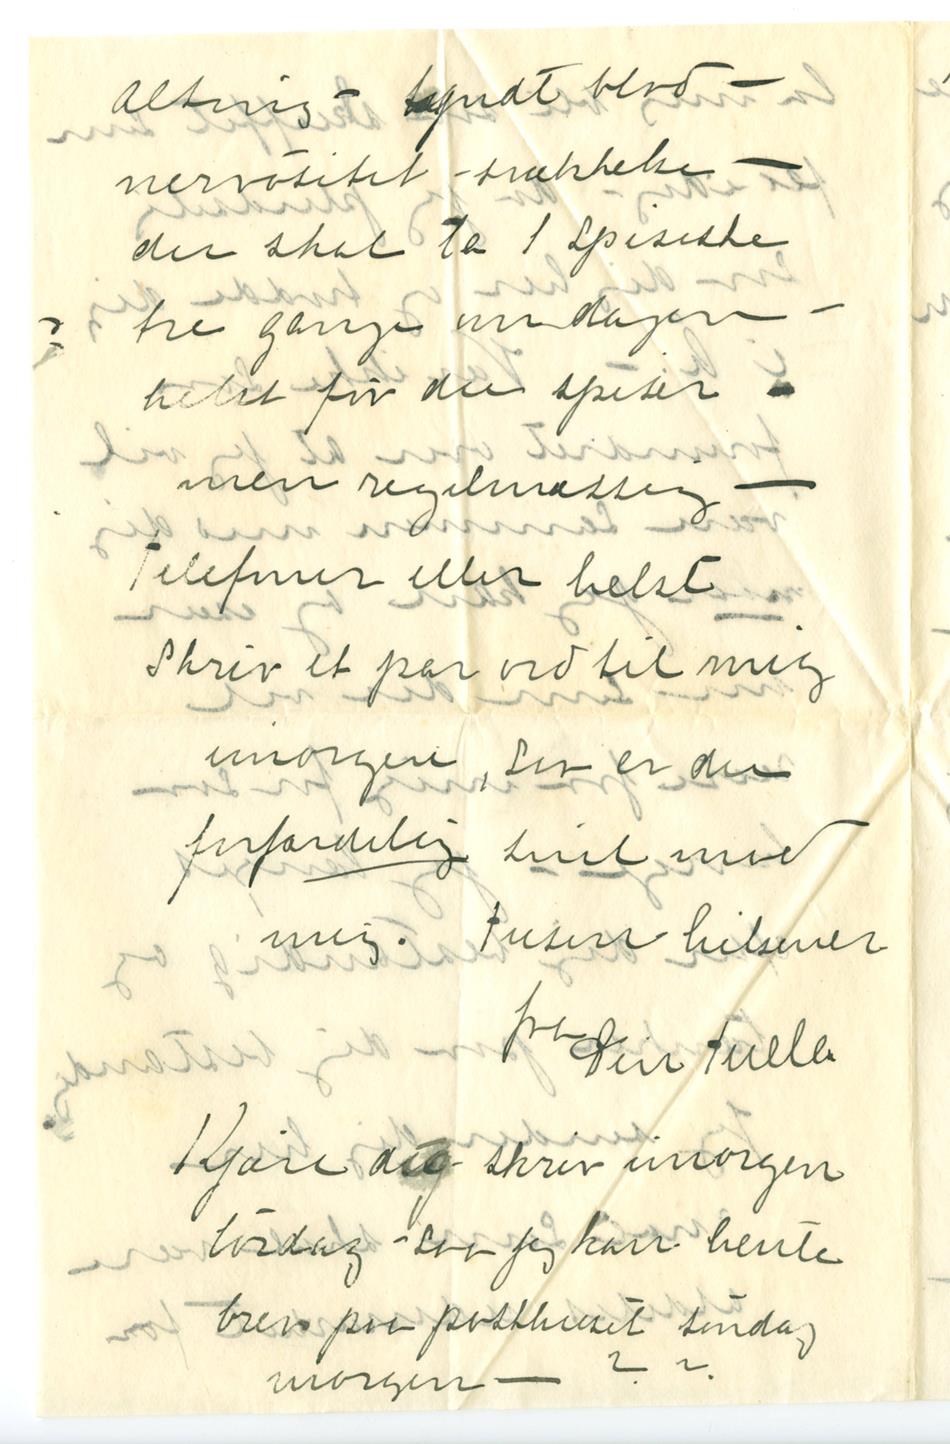 Altring – tyndt blod –
nervøsitet – svækkelse –
du skal ta 1 spiseske
tre gange om dagen –
helst før du spiser –
men regelmæssig –
Telefoner eller helst
skriv et par ord til mig
imorgen, ser er du
forfærdelig snil mod
mig. Tusen hilsener
fra Din Tulla
Kjære dig skriv imorgen
lørdag – saa jeg kan hente
brev paa posthuset søndag
morgen – ? ?